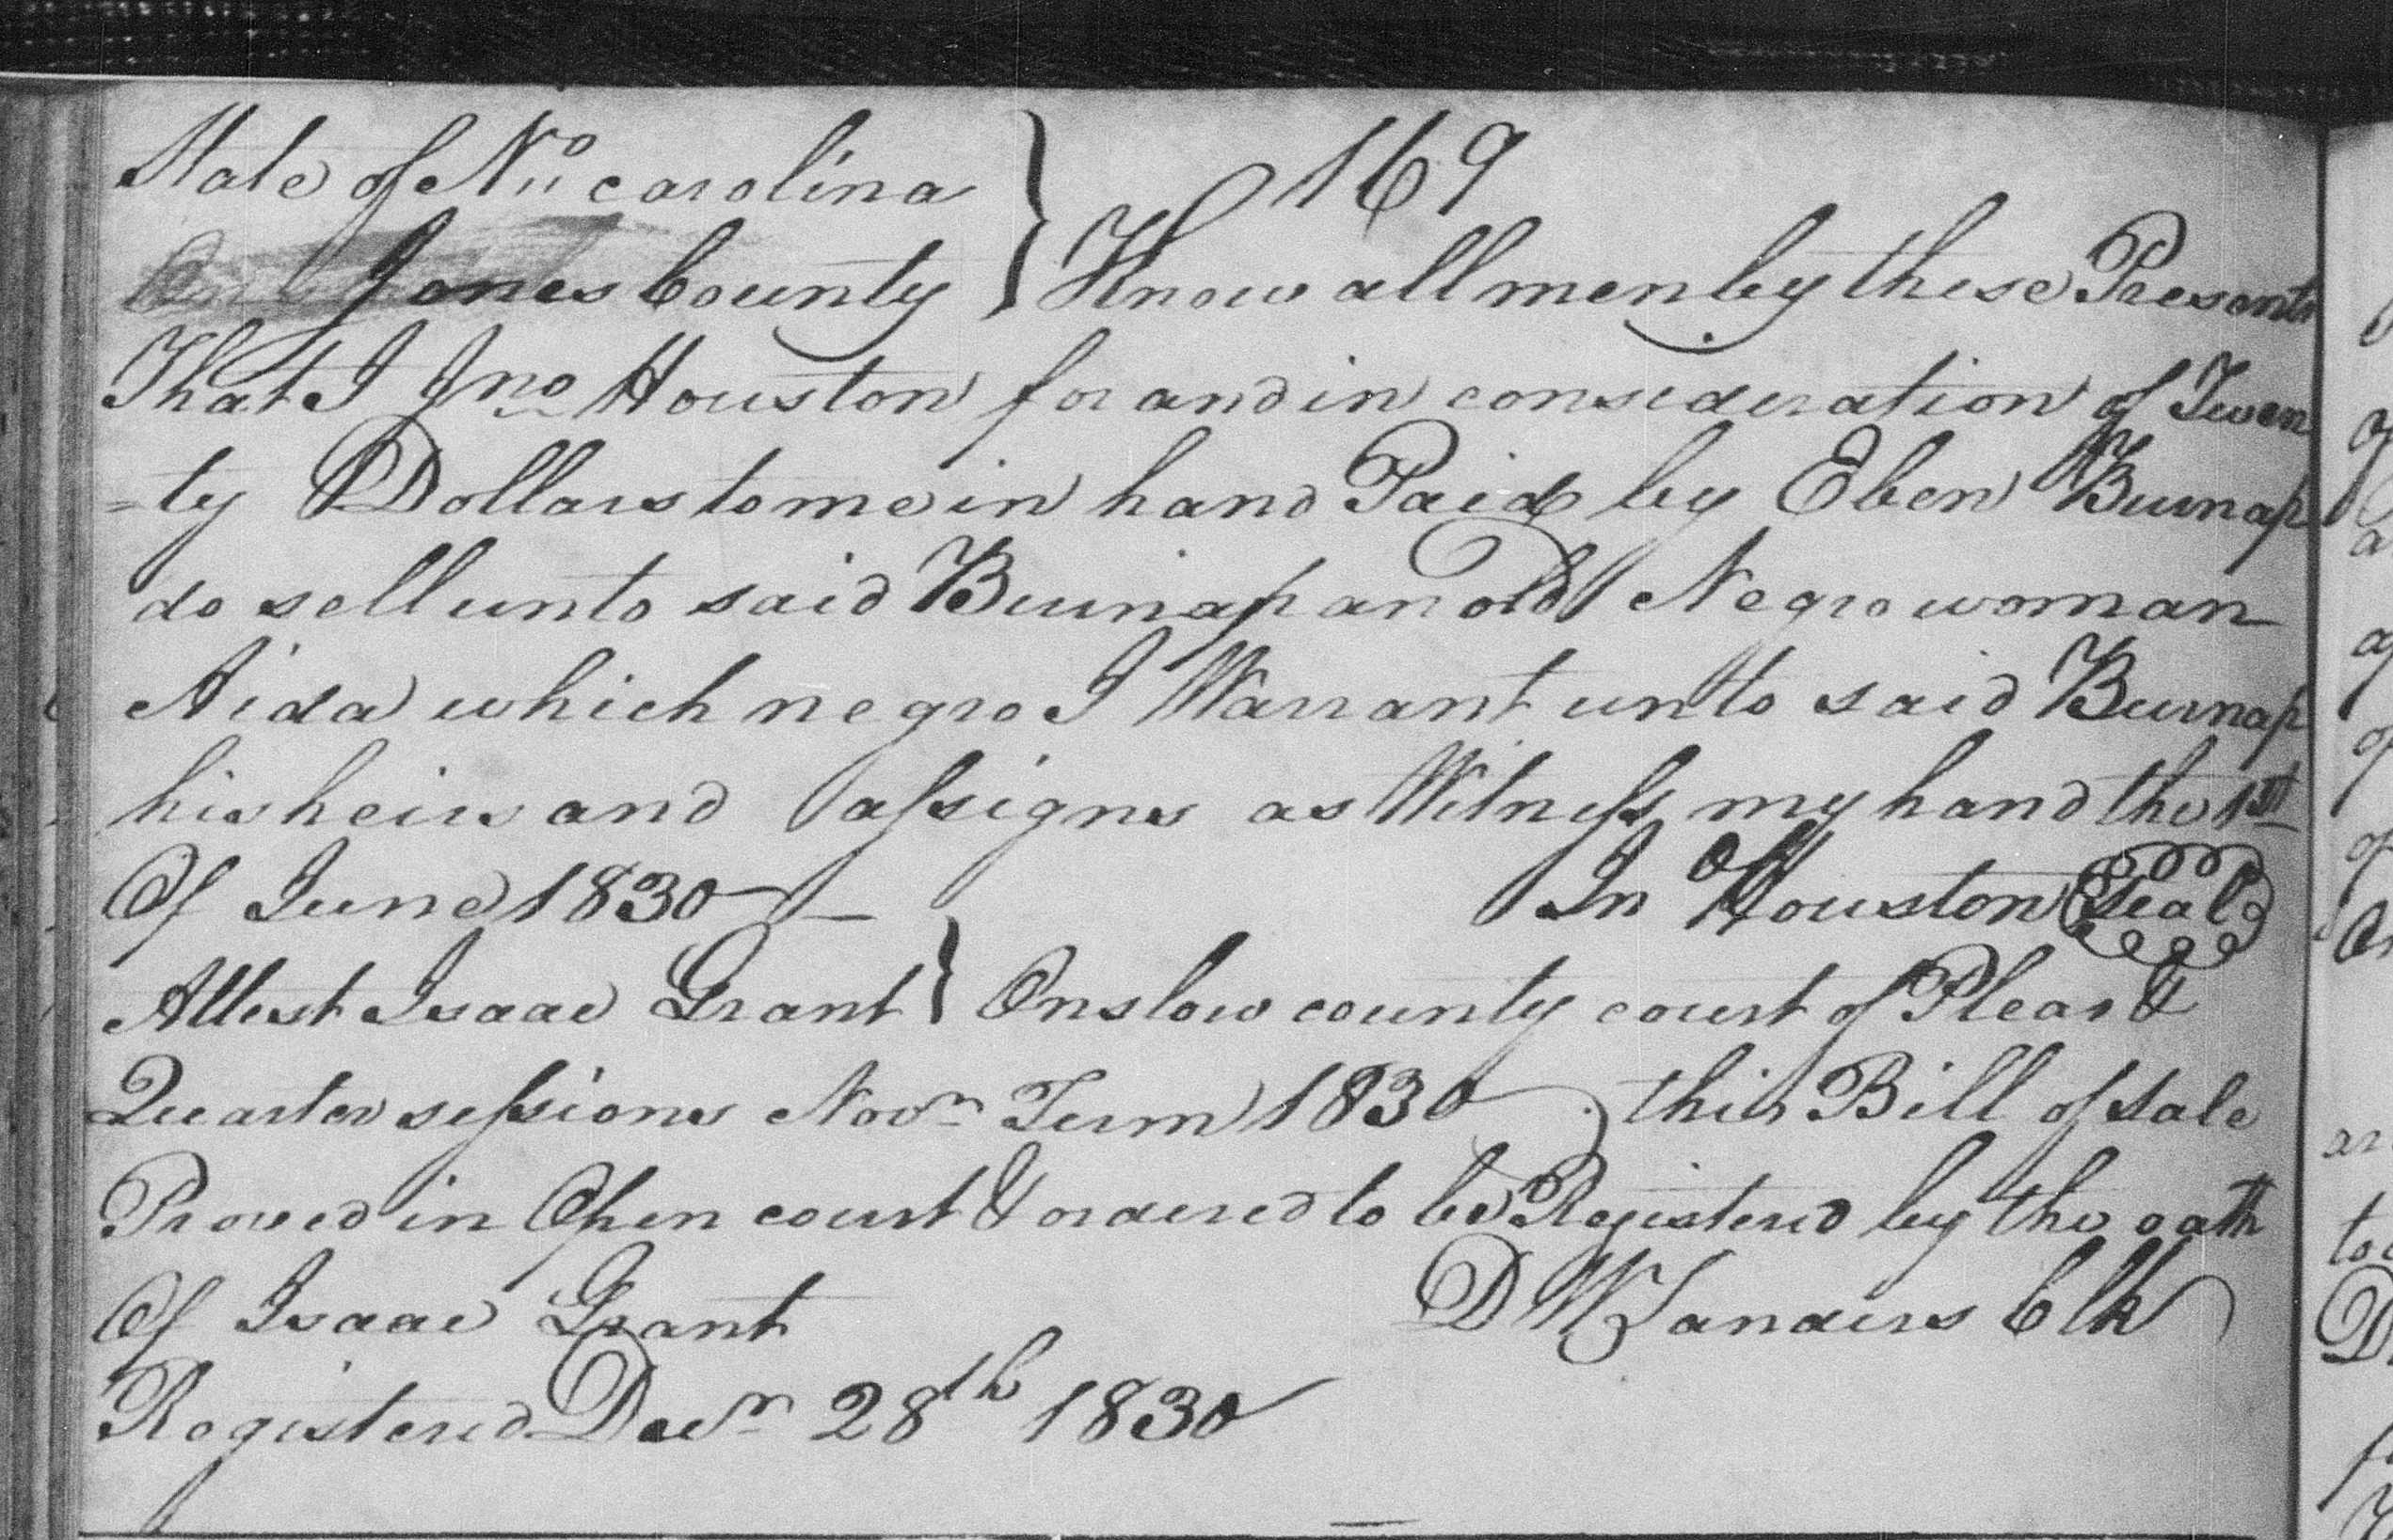 169
State of No carolina
Jones County } Know all men by these Presents
That I Jno Houston for and in consideration of Twen
=ty Dollars to me in hand Paid by Eben Burnap
do sell unto said Burnap an old Negro woman
Aida which negro I Warrant unto said Burnap
his heirs and assigns as Witness my hand the 1st
Of June 1830 — Jno Houston Seal
Attest Isaac Grant } Onslow county court of Pleas &
Quarter sessions Novr Term 1830 this Bill of sale
Proved in Open court & ordered to be Registered by the oath
Of Isaac Grant D W Sanders Clk
Registered Decr 28th 1830